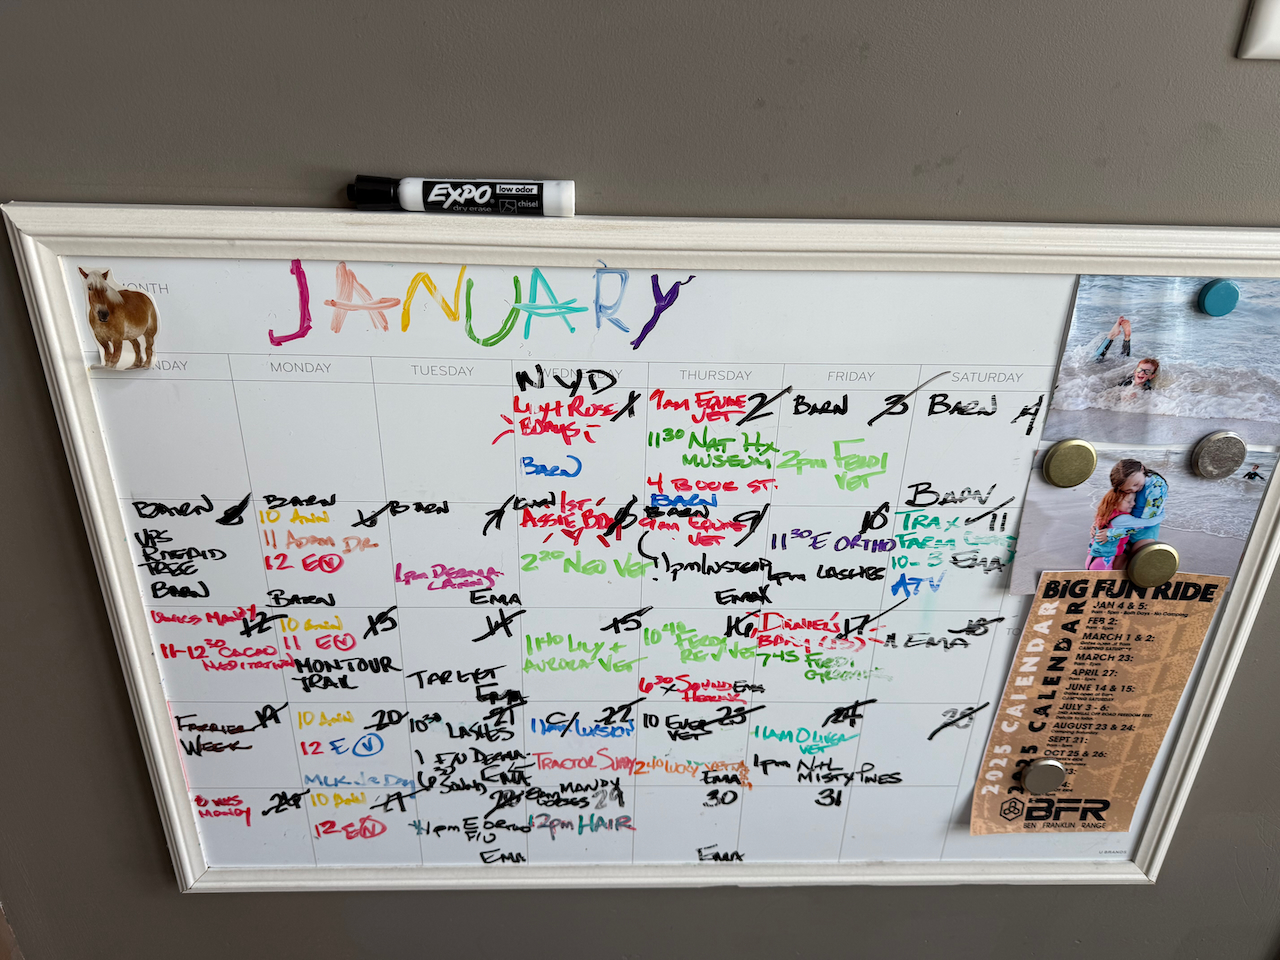 EXPO
low odor
dry erase
chisel
MONTH
JANUARY
NDAY
MONDAY
TUESDAY
WEDNESDAY
THURSDAY
FRIDAY
SATURDAY
NYD
1
LILY + ROSE
BDAYS!
BARN
9AM EQUINE
VET
2
11 30 NAT HX
MUSEUM
4 BOOK ST.
BARN
BARN
3
2pm FERDI
VET
BARN
4
BARN
BARN
UPS
PREPAID
TREE
BARN
BARN
10 ANN
6
11 ADAM DR.
12 E V
BARN
BARN
7
1pm DERMA
EMA
1ST
AUSSIE BDAY
8
2 20 NEO VET
BARN
9AM EQUINE
VET
9
1pm INSTEAD
EMA
10
11 30 E ORTHO
1pm LASHES
TRAX
11
FARM
10-3 EMA
ATV
MANDY
12
11-12 30 CACAO
MEDITATION
10 ANN
13
11 E V
MONTOUR
TRAIL
14
TARGET
EMA
15
1 40 LILY +
AURORA VET
16
10 40 FERDI
REV VET
6 30 SOUND EMA
DANIEL'S
17
7 45 FERDI
EMA
18
FARRIER
WEEK
19
10 ANN
20
12 E V
MLK Jr Day
10 30 LASHES
21
1 F/U DERMA
6 30 SOUND EMA
C/
22
TRACTOR SUPPLY
10 EVER
VET
23
EMA
24
11AM OLIVER
VET
1pm NHL
MISTY PINES
25
MANDY
26
10 ANN
27
12 E V
28
1pm E ORTHO
F/U
EMA
MANDY
29
12pm HAIR
30
EMA
31
U BRANDS
BIG FUN RIDE
2025 CALENDAR
2025 CALENDAR
JAN 4 & 5:
FEB 2:
MARCH 1 & 2:
MARCH 23:
APRIL 27:
JUNE 14 & 15:
JULY 3 - 6:
AUGUST 23 & 24:
SEPT 21:
OCT 25 & 26:
BFR
BEN FRANKLIN RANGE